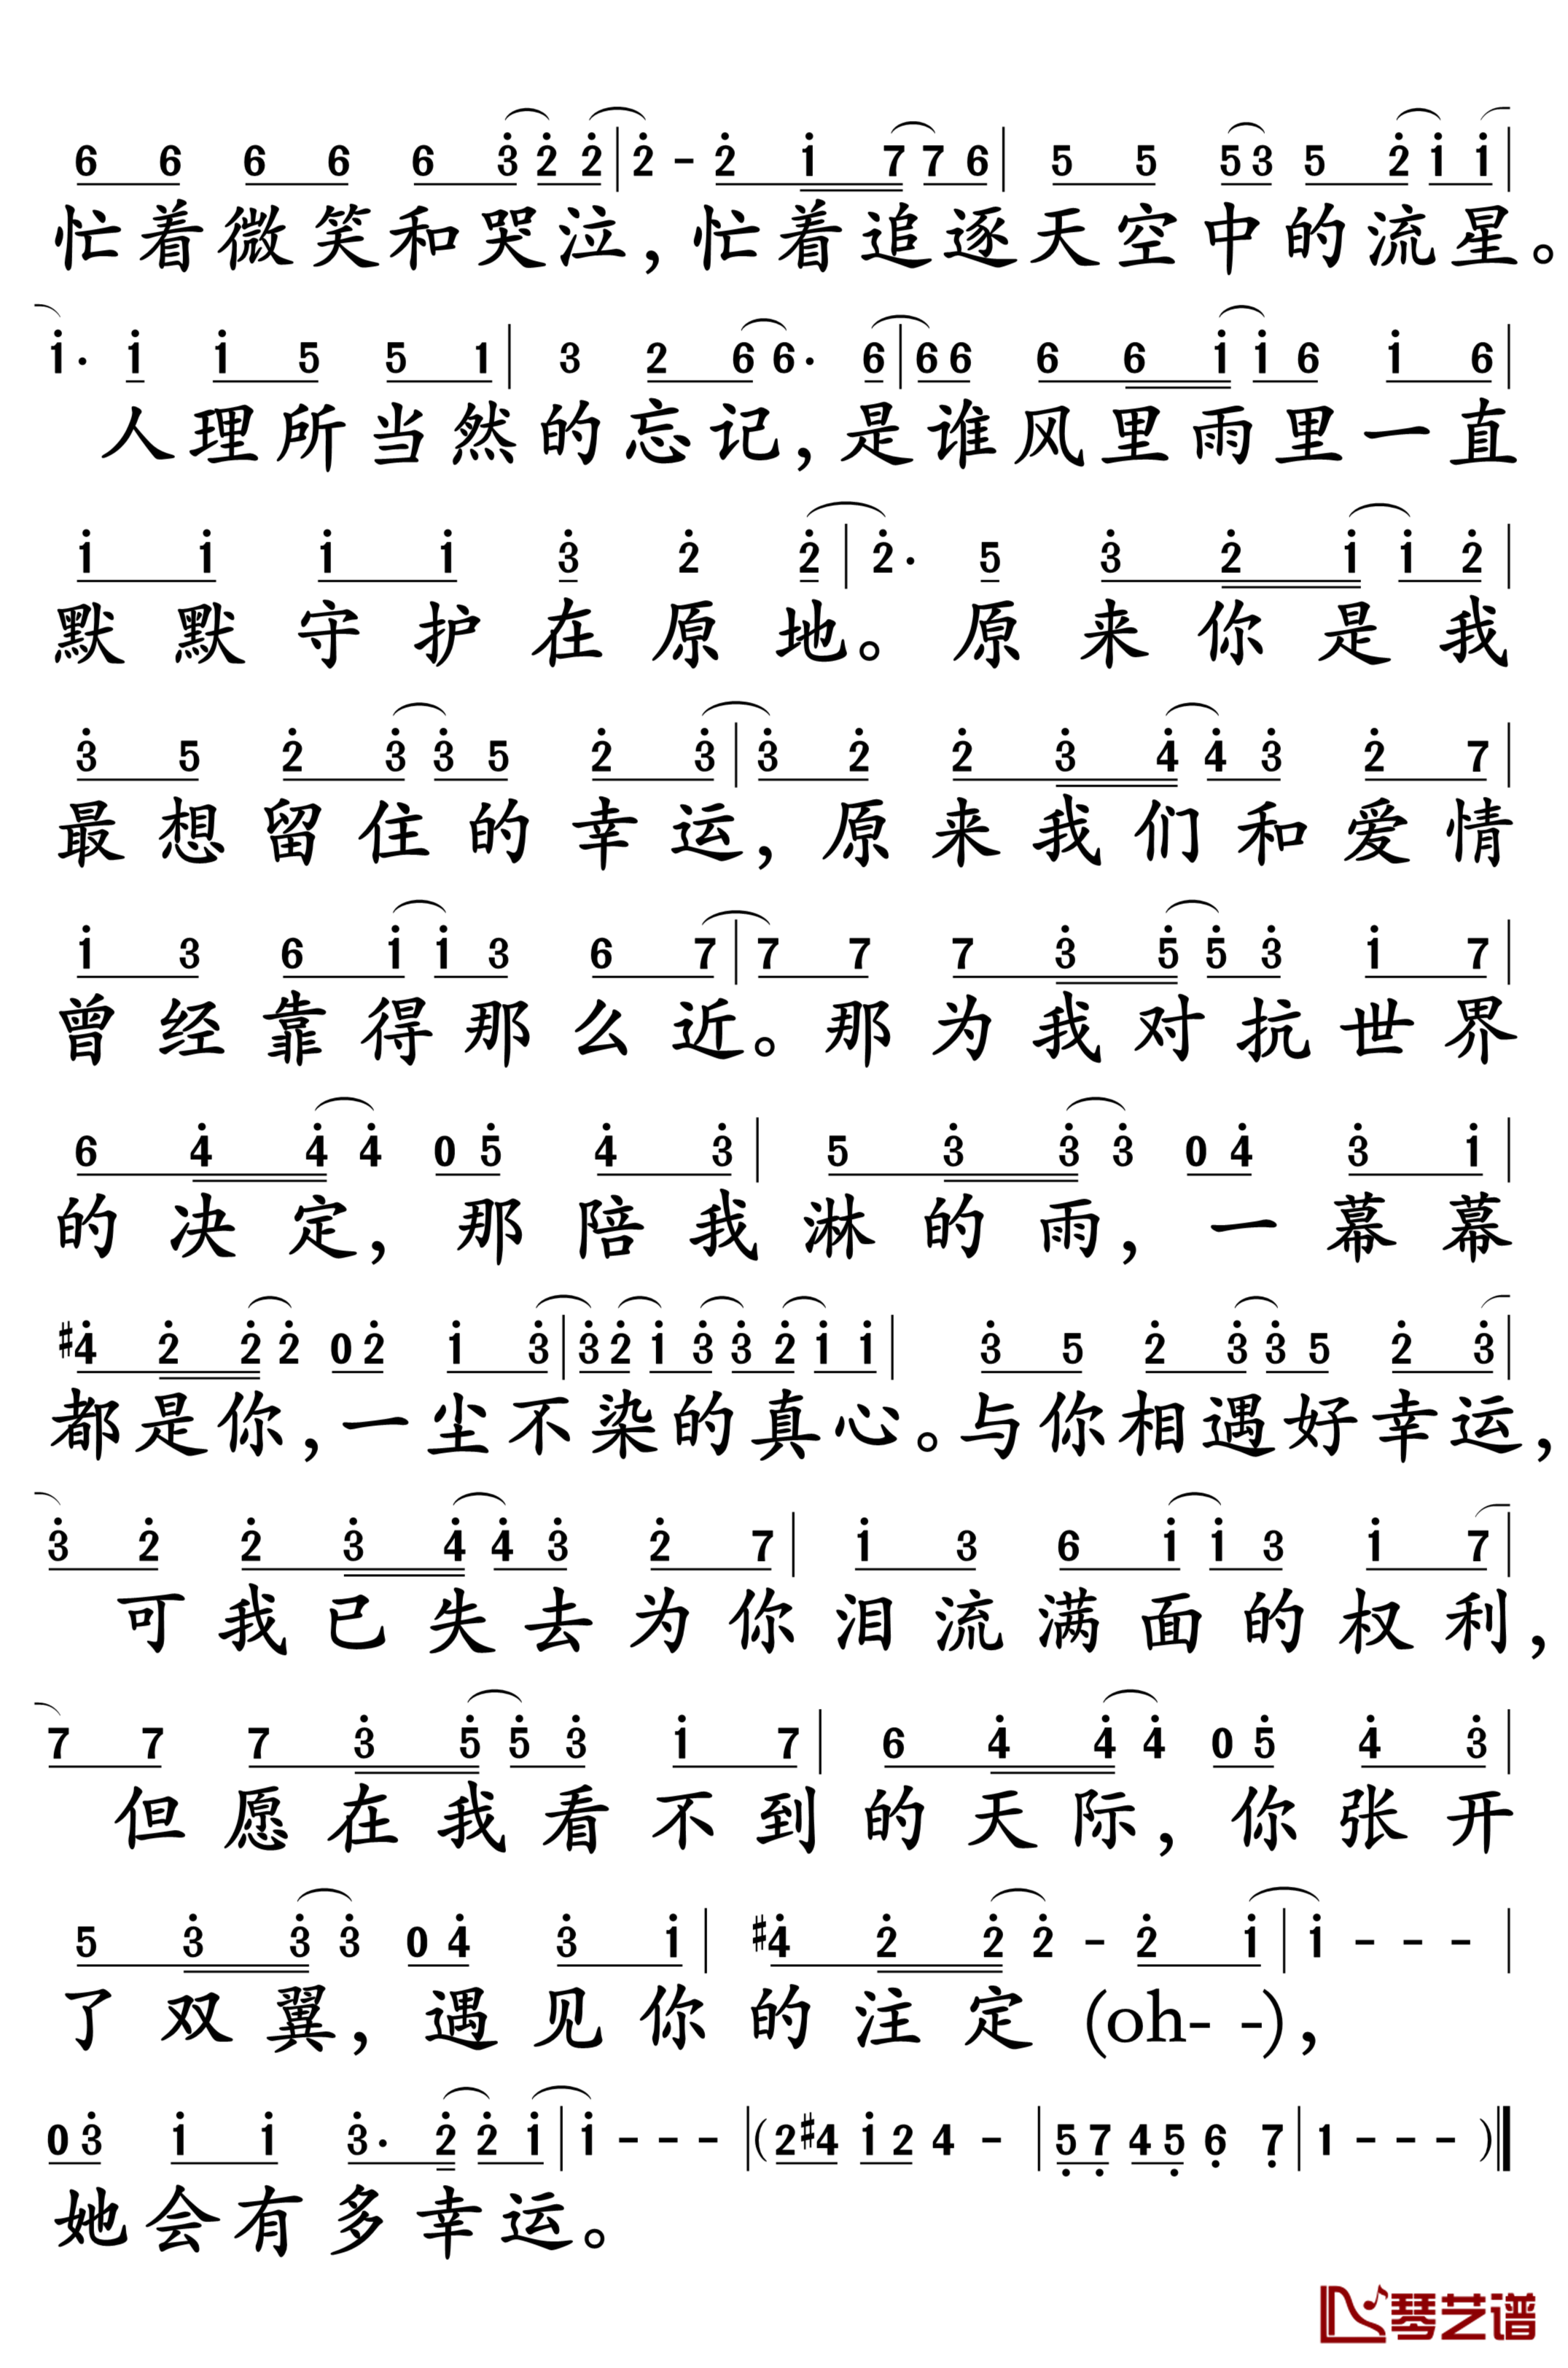 6 6 6 6 6 3 2 2 | 2 - 2 1 7 7 6 | 5 5 5 3 5 2 1 1 |
忙着微笑和哭泣,忙着追逐天空中的流星。
1· 1 1 5 5 1 | 3 2 6 6· 6 | 6 6 6 6 1 1 6 1 6 |
人理所当然的忘记,是谁风里雨里一直
1 1 1 1 3 2 2 | 2· 5 3 2 1 1 2 |
默默守护在原地。原来你是我
3 5 2 3 3 5 2 3 | 3 2 2 3 4 4 3 2 7 |
最想留住的幸运,原来我们和爱情
1 3 6 1 1 3 6 7 | 7 7 7 3 5 5 3 1 7 |
曾经靠得那么近。那为我对抗世界
6 4 4 4 0 5 4 3 | 5 3 3 3 0 4 3 1 |
的决定,那陪我淋的雨,一幕幕
#4 2 2 2 0 2 1 3 | 3 2 1 3 3 2 1 1 | 3 5 2 3 3 5 2 3 |
都是你,一尘不染的真心。与你相遇好幸运,
3 2 2 3 4 4 3 2 7 | 1 3 6 1 1 3 1 7 |
可我已失去为你泪流满面的权利,
7 7 7 3 5 5 3 1 7 | 6 4 4 4 0 5 4 3 |
但愿在我看不到的天际,你张开
5 3 3 3 0 4 3 1 | #4 2 2 2 - 2 1 | 1 - - - |
了双翼,遇见你的注定(oh- -),
0 3 1 1 3· 2 2 1 | 1 - - - | (2 #4 1 2 4 - | 5 7 4 5 6 7 | 1 - - - )‖
她会有多幸运。
琴艺谱